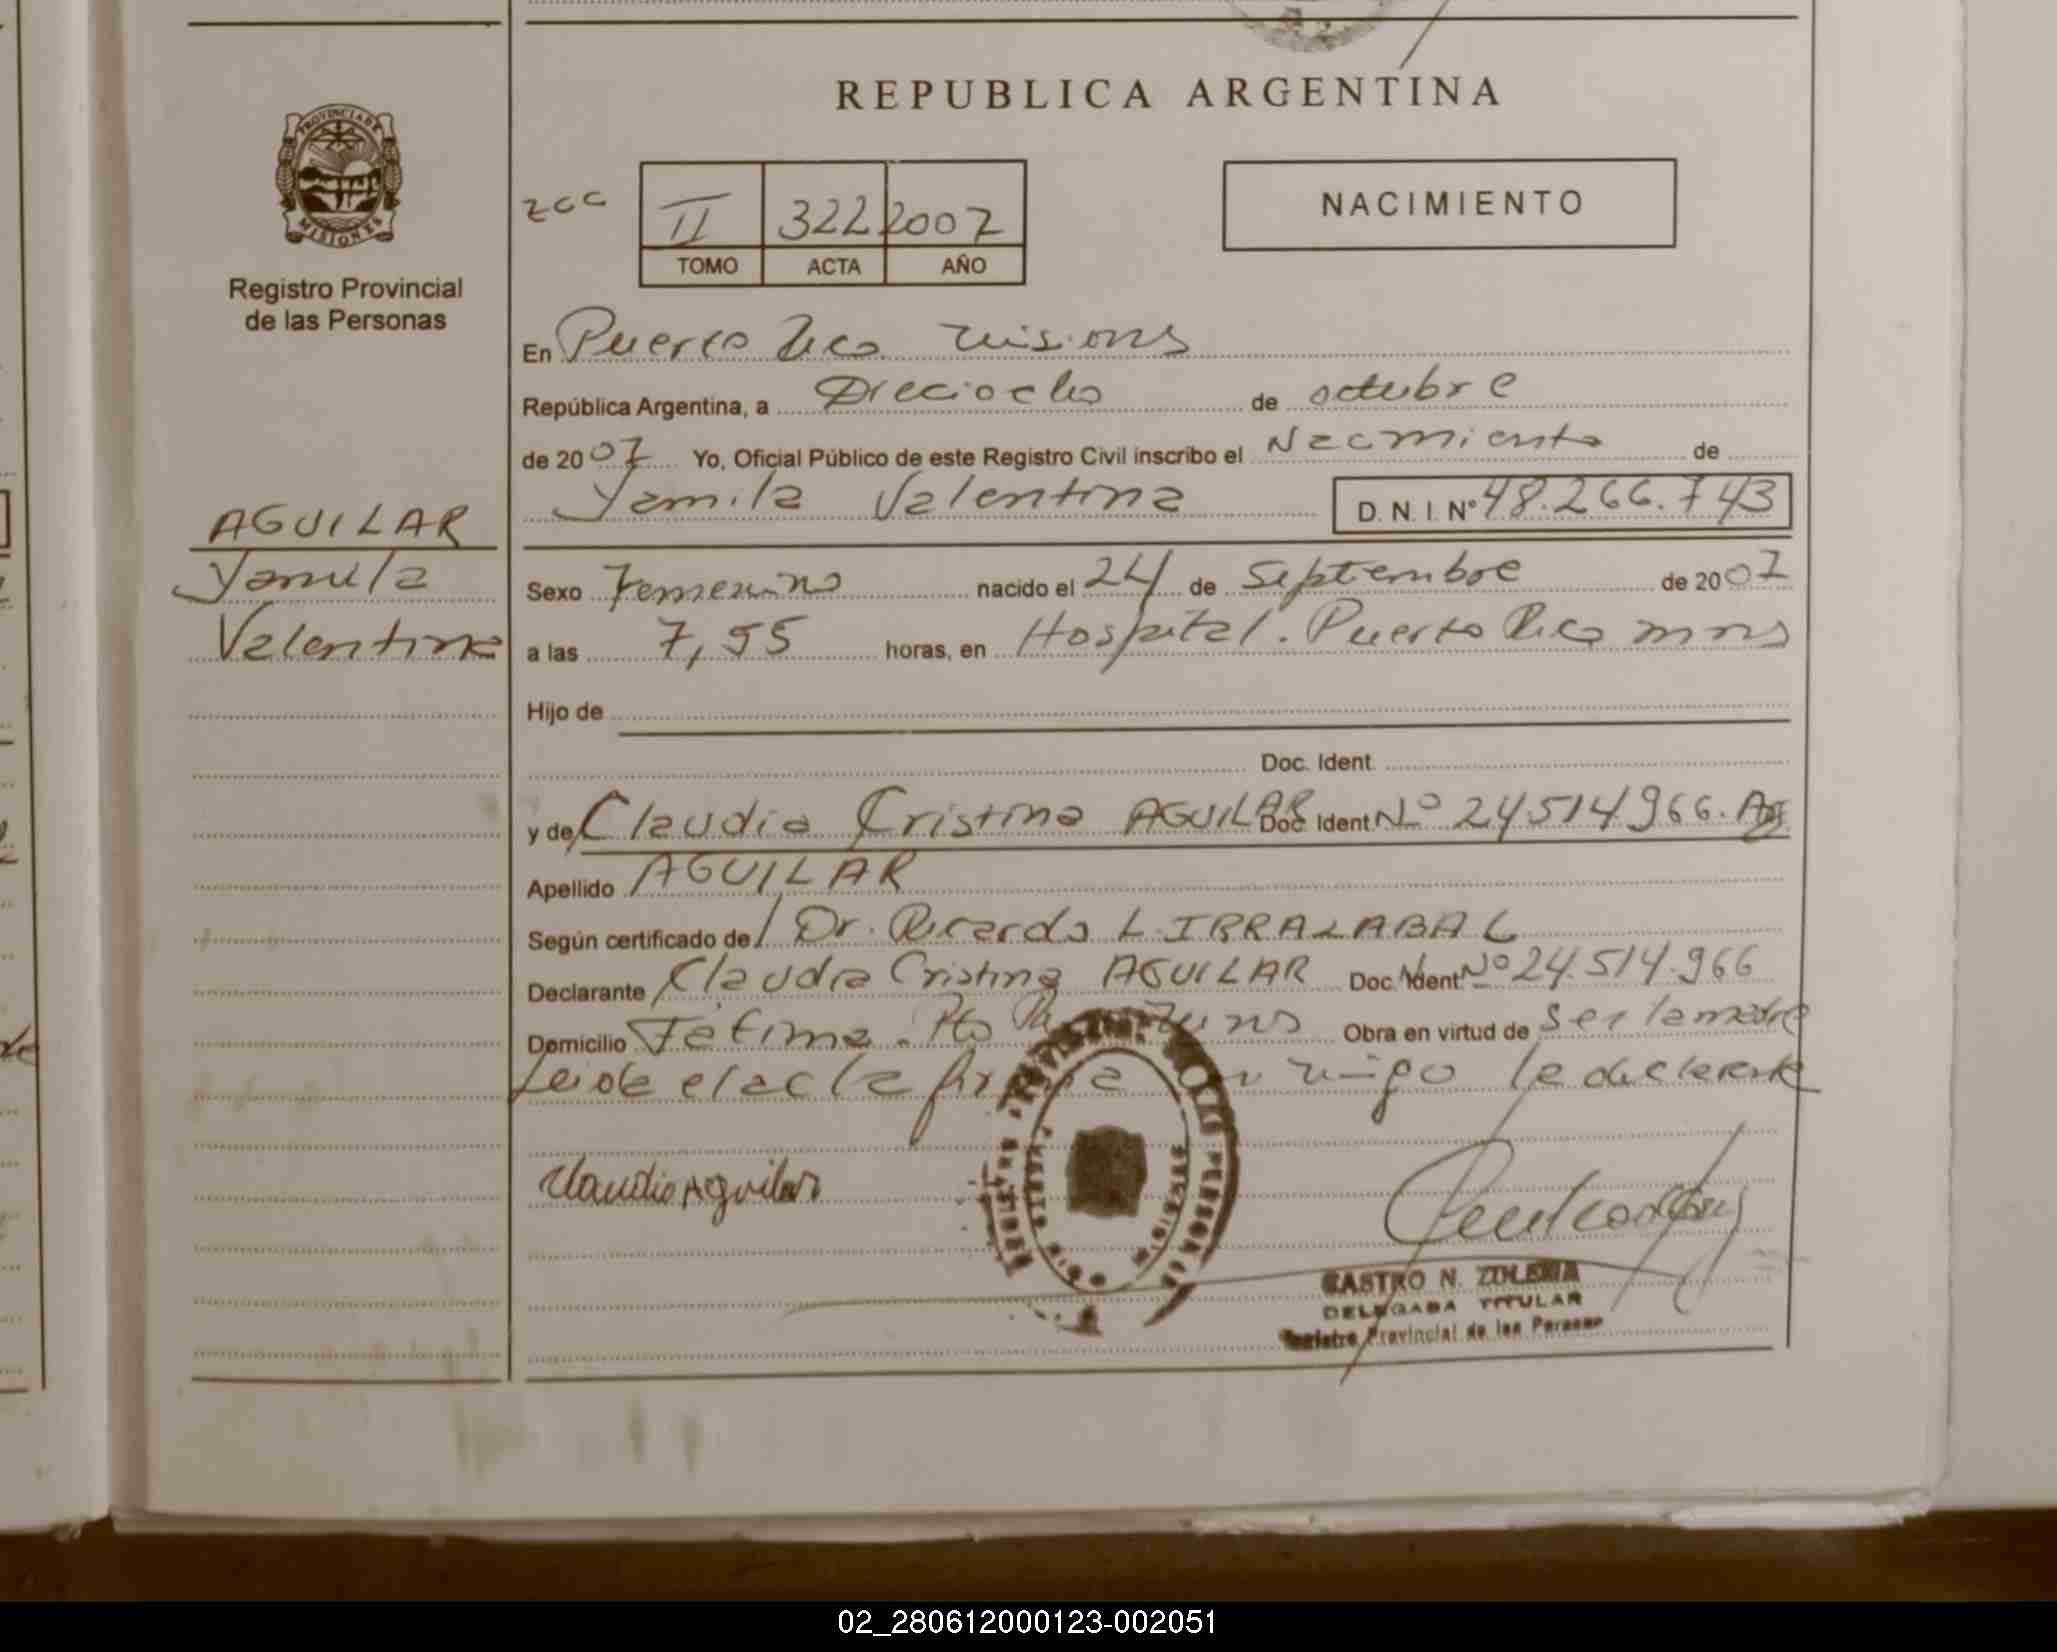 REPUBLICA ARGENTINA
PROVINCIA DE
MISIONES
Registro Provincial
de las Personas
zcc
II 322 2007
TOMO ACTA AÑO
NACIMIENTO
En Puerto Rico Misiones
República Argentina, a Dieciocho de octubre
de 2007 Yo, Oficial Público de este Registro Civil inscribo el Nacimiento de
Yamila Valentina D. N. I. Nº 48.266.743
AGUILAR
Yamila
Valentina
Sexo Femenino nacido el 24 de Septiembre de 2007
a las 7,55 horas, en Hospital. Puerto Rico mnes
Hijo de
Doc. Ident.
y de Claudia Cristina AGUILAR Doc. Ident. Nº 24514966.
Apellido AGUILAR
Según certificado del Dr. Ricardo L. IRRALABAL
Declarante Claudia Cristina AGUILAR Doc. Ident. Nº 24.514.966
Domicilio Fátima. Pto Obra en virtud de ser la madre
Leida el acta firma migo la declarante
Claudia Aguilar
CASTRO N. ZULEMA
DELEGADA TITULAR
Registro Provincial de las Personas
02_280612000123-002051